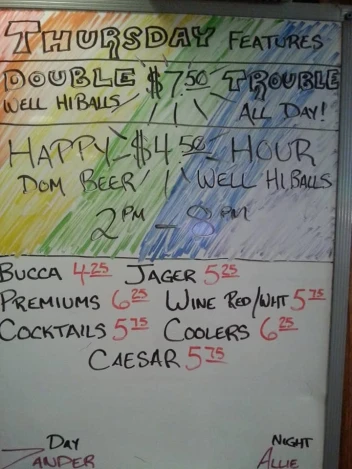 THURSDAY FEATURES
DOUBLE $7.50 TROUBLE
WELL HIBALLS ALL DAY!
HAPPY $4.50 HOUR
DOM BEER WELL HIBALLS
2PM - 8PM
BUCCA 4.25 JAGER 5.25
PREMIUMS 6.25 WINE RED/WHT 5.75
COCKTAILS 5.75 COOLERS 6.25
CAESAR 5.75
DAY NIGHT
ZANDER ALLIE